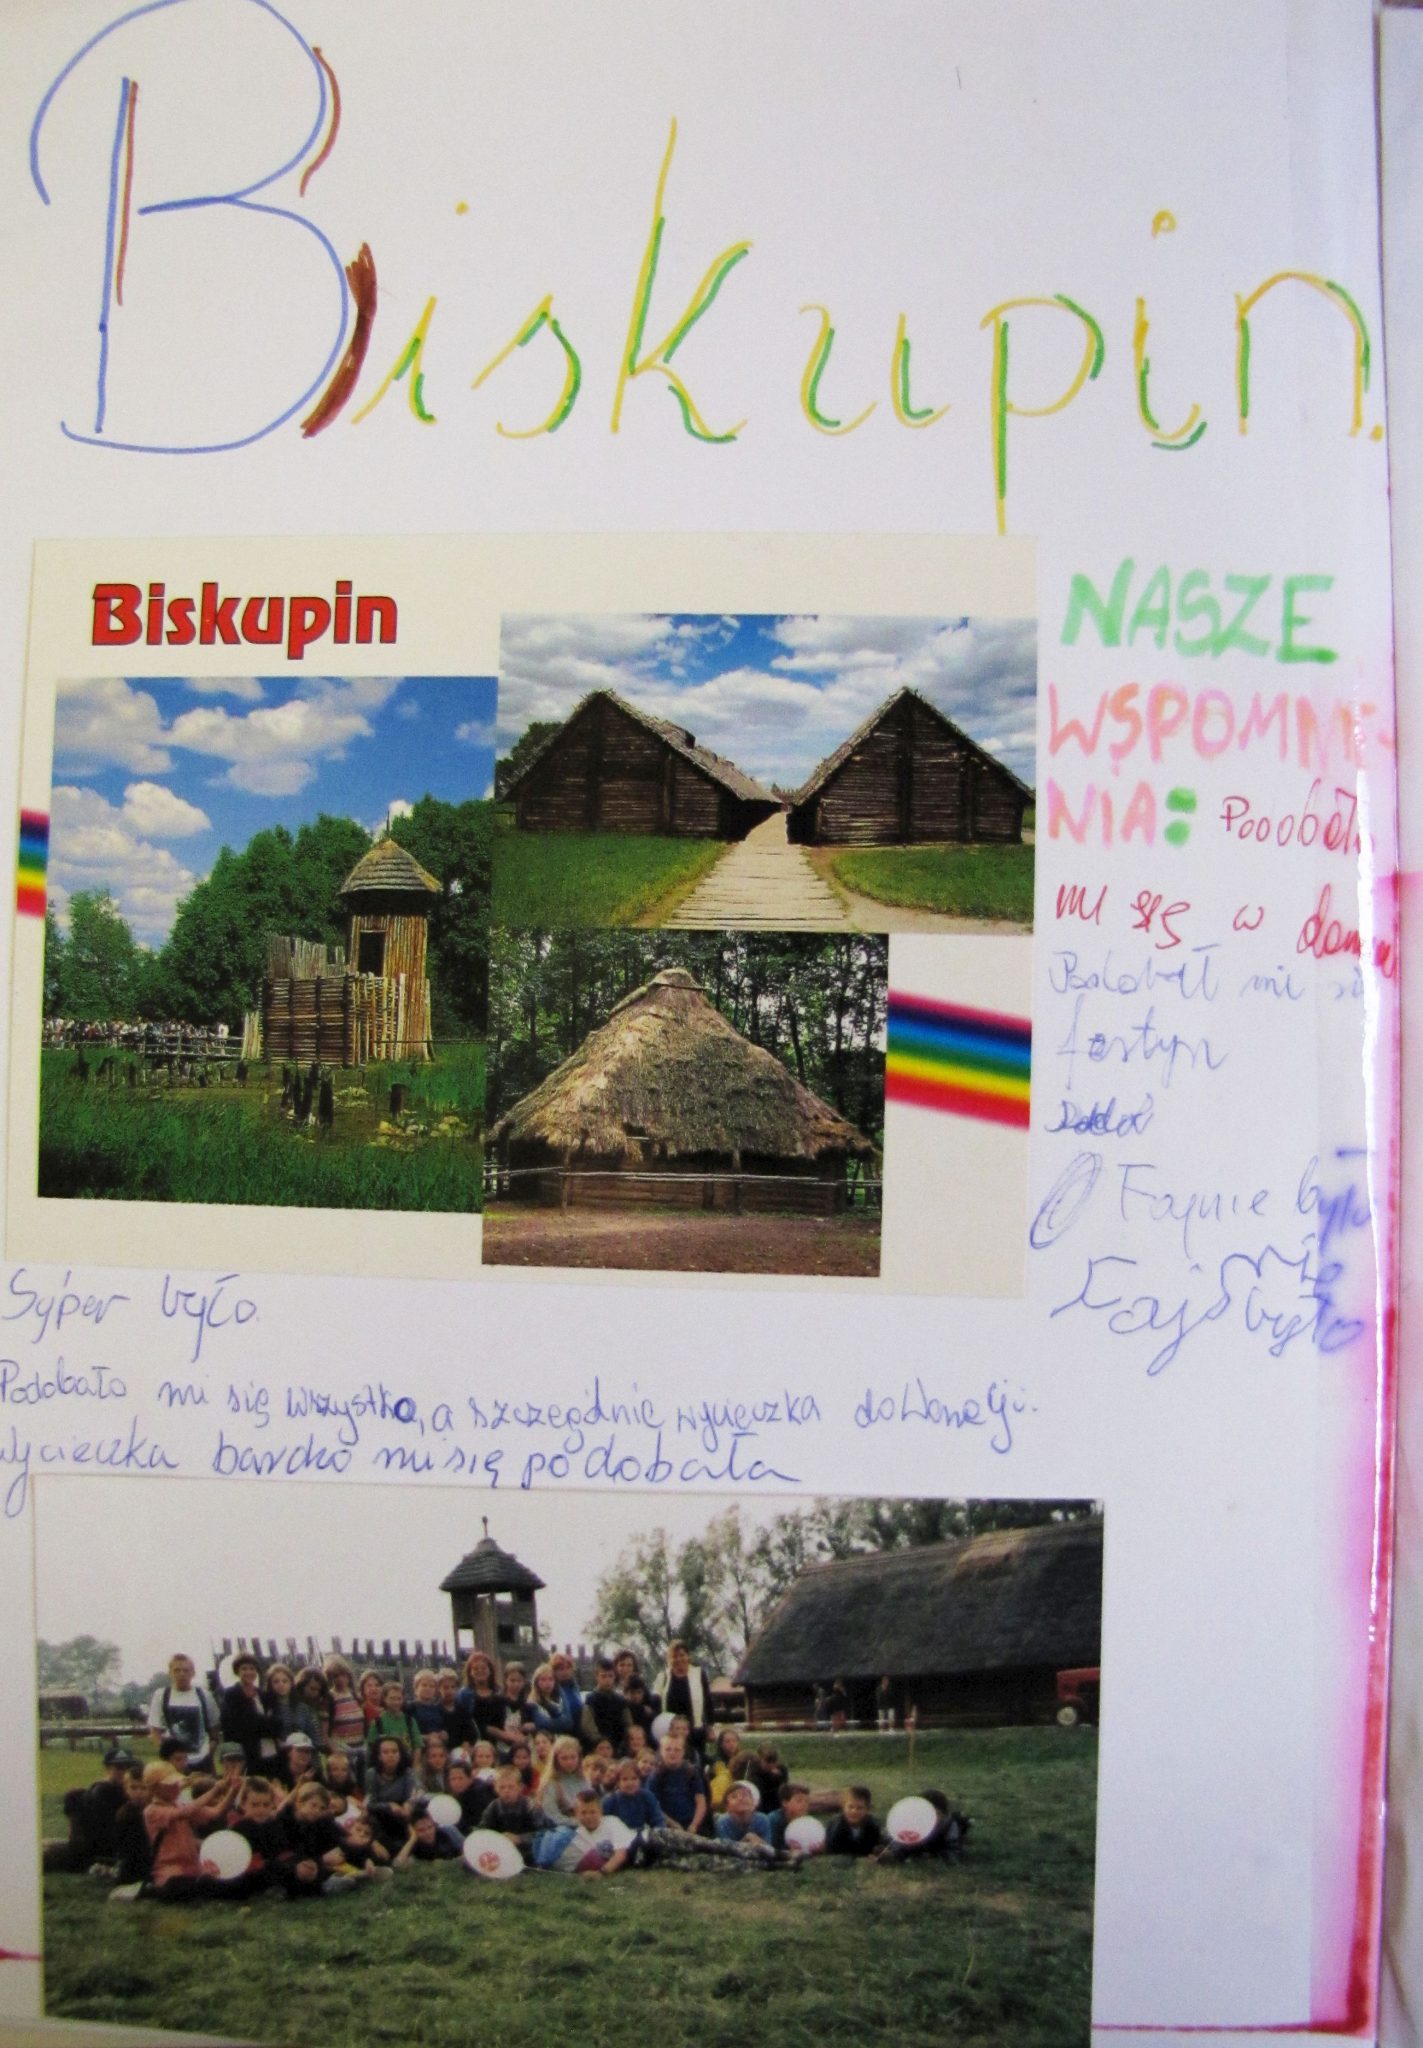 Biskupin.
Biskupin
NASZE
WSPOMNIE-
NIA: Podobało
mi się w
Podobał mi się
festyn
Fajnie było
Fajnie
było
Syper było.
Podobało mi się wszystko, a szczegdnie wycieczka do Wenecji.
Wycieczka bardzo mi się podobała